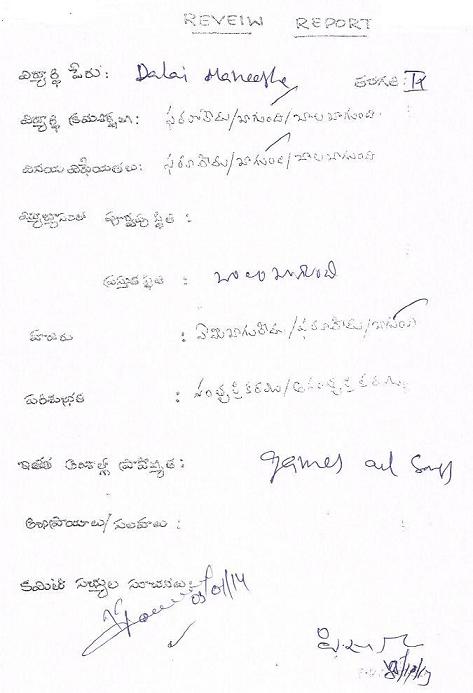 REVEIW REPORT
విద్యార్థి పేరు: Dalai Maneesha తరగతి: IV
విద్యార్థి క్రమశిక్షణ: ఫరవాలేదు/బాగుంది/చాలబాగుంది
వినయ విధేయతలు: ఫరవాలేదు/బాగుంది/చాలబాగుంది
విద్యాభ్యాసంలో పూర్వపు స్థితి :
ప్రస్తుత స్థితి : చాలా బాగుంది
హాజరు : ఏమిబాగులేదు/ఫరవాలేదు/బాగుంది
పరిశుభ్రత : సంతృప్తికరము/అసంతృప్తికరము
ఇతర అంశాల్లో ప్రావీణ్యత: games and Songs
అభిప్రాయాలు/సలహాలు :
కమిటీ సభ్యుల సూచనలు:
03/01/14